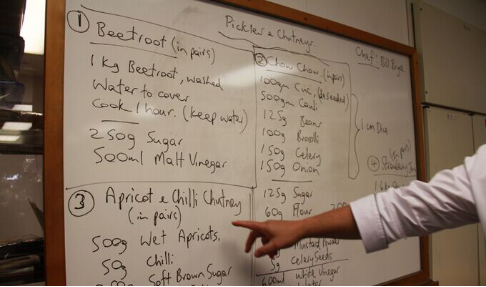 Pickles & Chutneys.
Chef: Bill Bryce
① Beetroot (in pairs)
1 Kg Beetroot, washed
Water to cover
Cook 1 hour. (keep water)
250g Sugar
500ml Malt Vinegar
② Chow Chow (in pairs)
100gm Cuc. (deseeded)
500gm Cauli
125g Beans
100g Brocolli
150g Celery
150g Onion
1 cm Dice
125g Sugar
60g Flour
Mustard Powder
Celery Seeds
600ml White Vinegar
Water
③ Apricot & Chilli Chutney
(in pairs)
500g Wet Apricots.
50g Chilli
Soft Brown Sugar
④ Strawberry